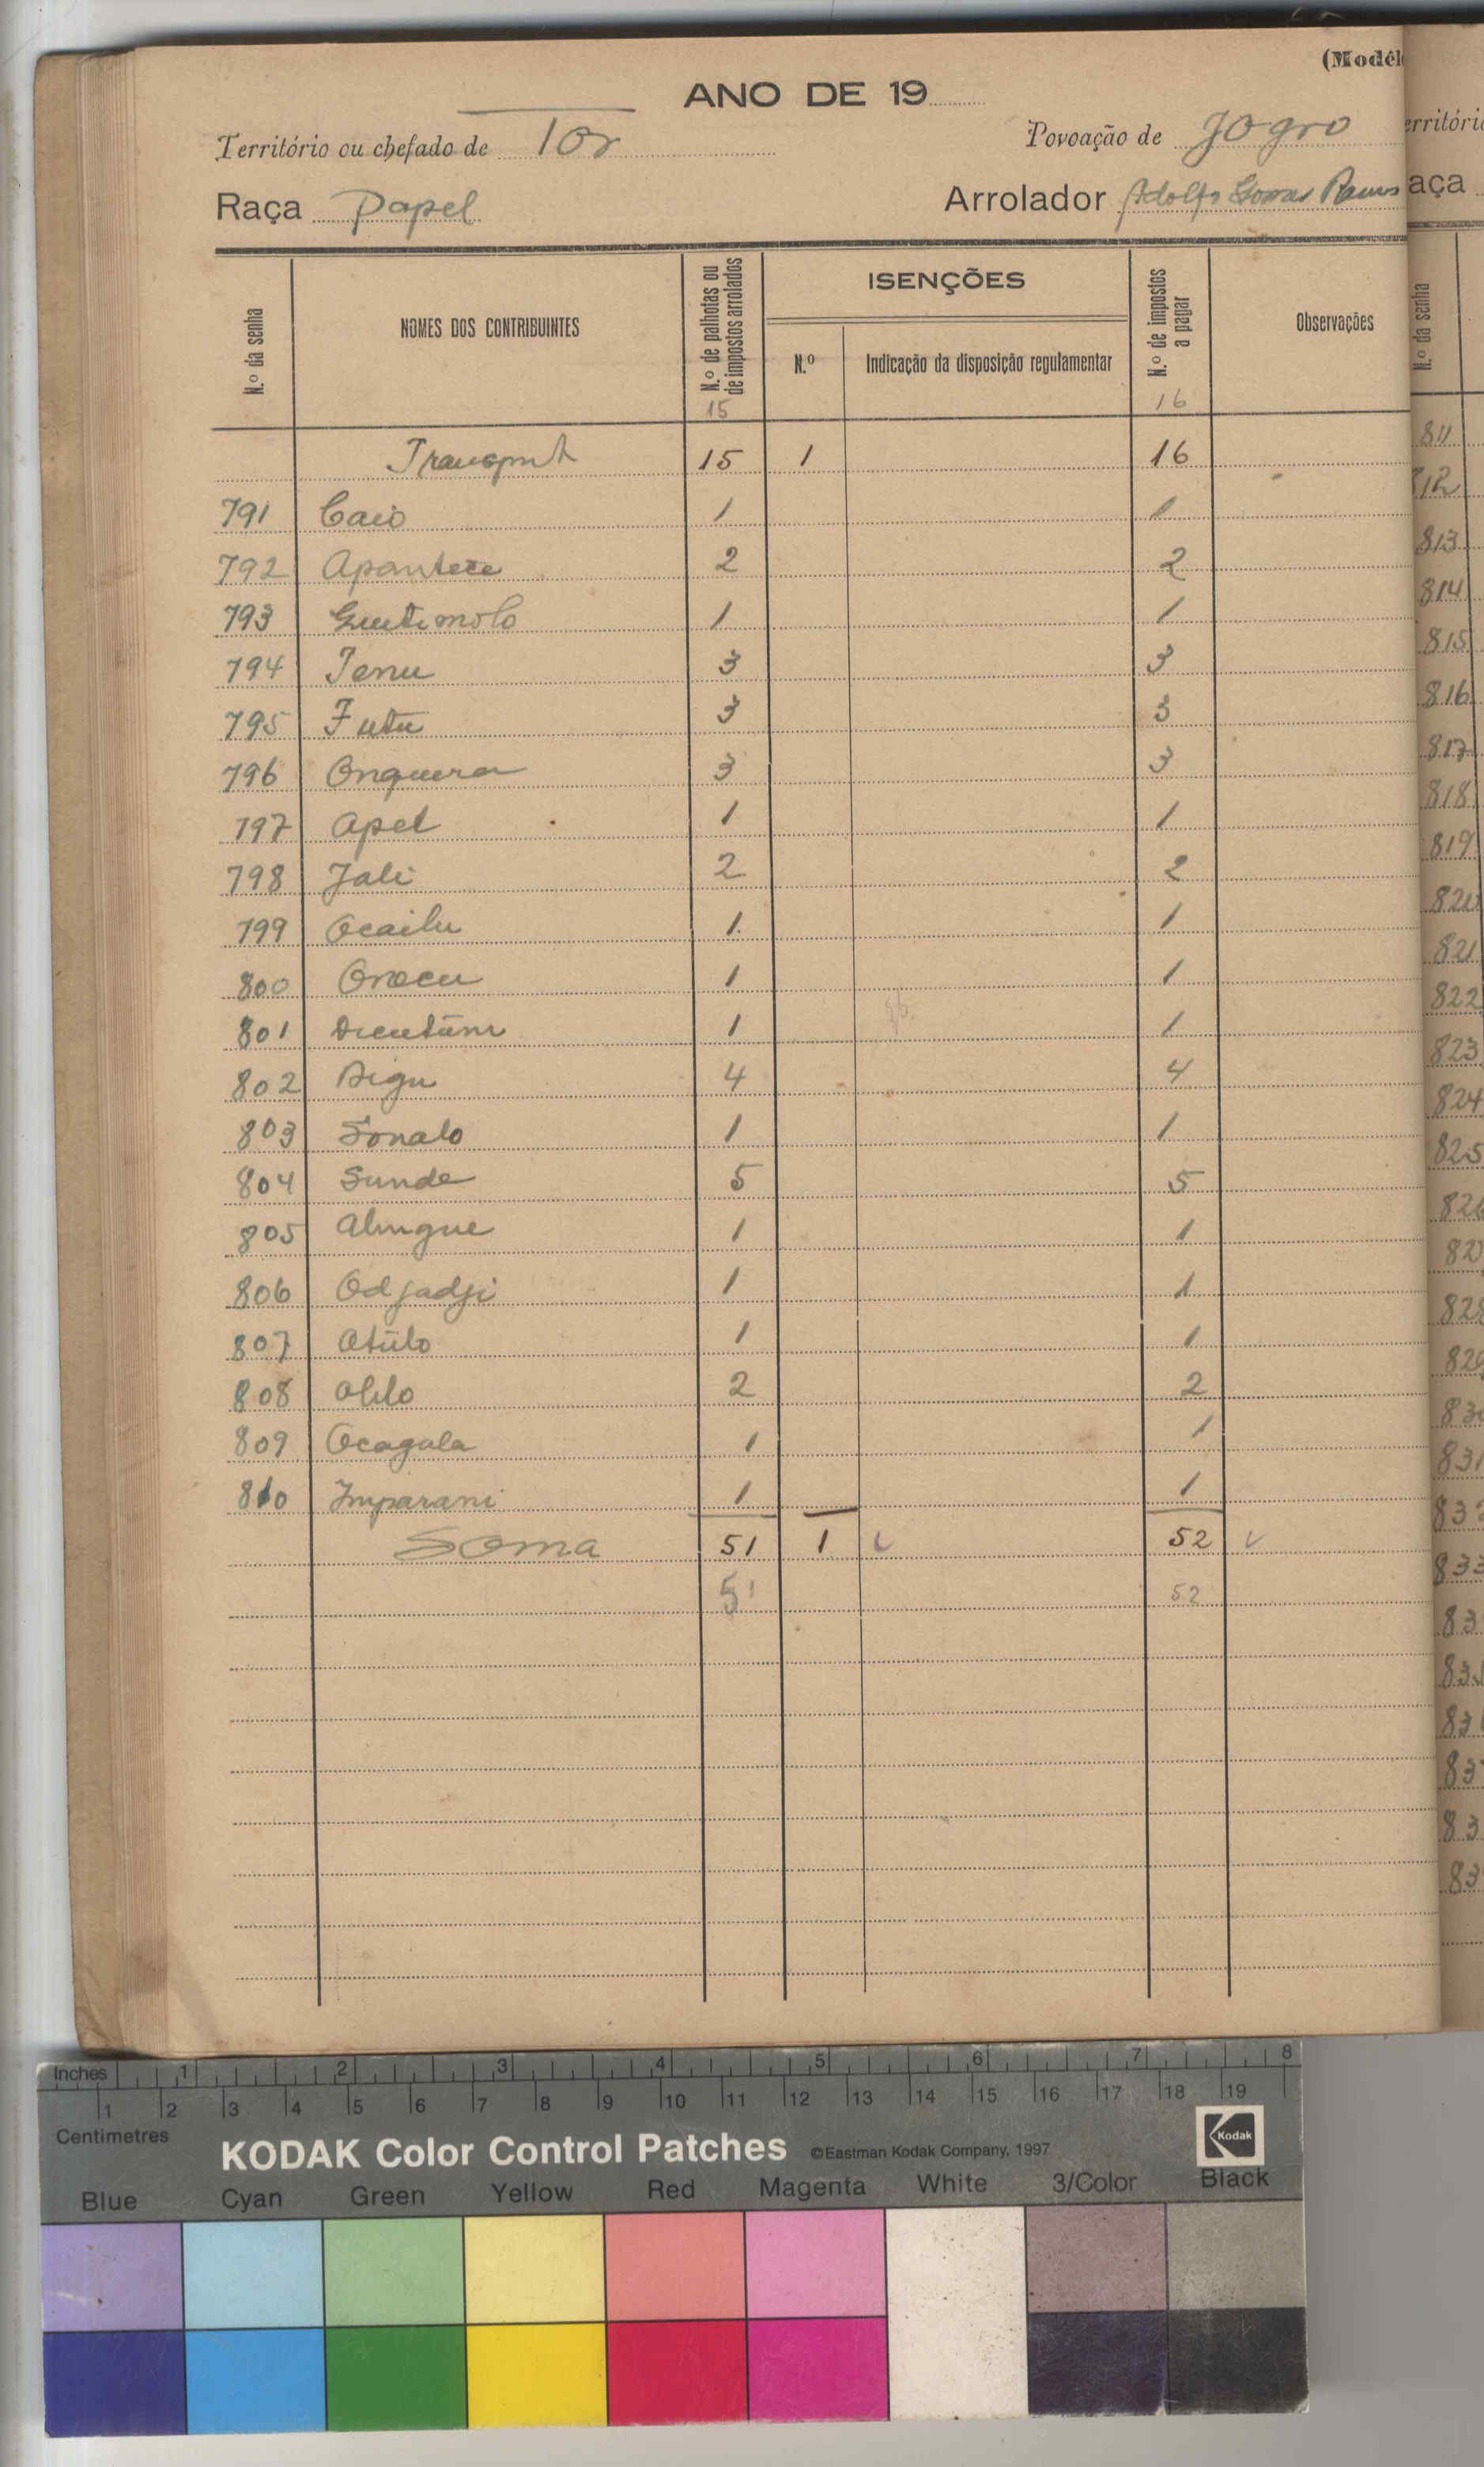 (Modêl
ANO DE 19
Território ou chefado de Tor
Povoação de Jogro
Raça Papel
Arrolador Adolfo Gomes Ramos
N.º da senha
NOMES DOS CONTRIBUINTES
N.º de palhotas ou de impostos arrolados
ISENÇÕES
N.º
Indicação da disposição regulamentar
N.º de impostos a pagar
Observações
15 16
Transport 15 1 16
791 Caio 1 1
792 Apantete 2 2
793 1 1
794 Tenu 3 3
795 Futu 3 3
796 Onquera 3 3
797 Apel 1 1
798 Jali 2 2
799 Ocailu 1. 1
800 Onocu 1 1
801 1 1
802 Digu 4 4
803 Sonalo 1 1
804 Sunde 5 5
805 Alingue 1 1
806 Odjadji 1 1
807 Otúlo 1 1
808 2 2
809 Ocagala 1 1
810 Imparani 1 1
Soma 51 1 52
51 52
erritóri
aça
N.º da senha
811
812
813
814
815
816
817
818
819
820
821
822
823
824
825
Inches 1 2 3 4 5 6 7 8
1 2 3 4 5 6 7 8 9 10 11 12 13 14 15 16 17 18 19
Centimetres
KODAK Color Control Patches ©Eastman Kodak Company, 1997 Kodak
Blue Cyan Green Yellow Red Magenta White 3/Color Black